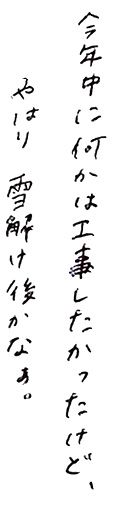 今年中に何かは工事したかったけど、
やはり 雪解け後かなぁ。